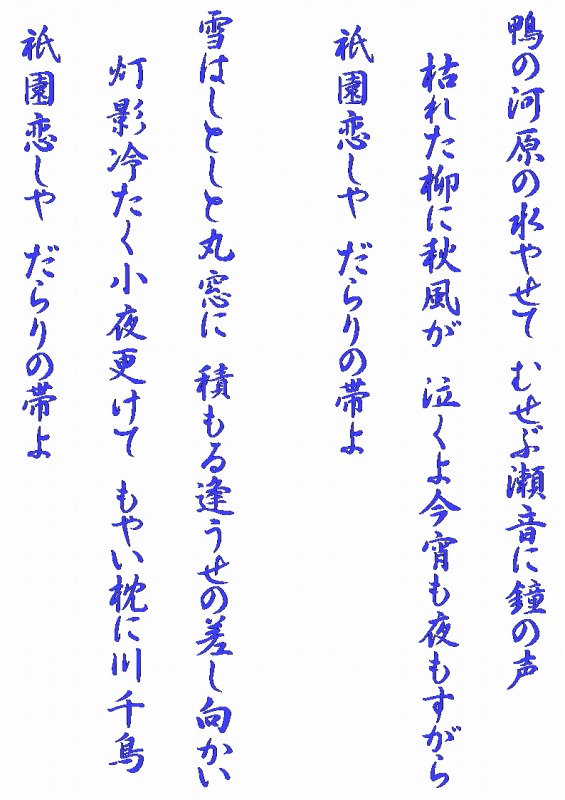 鴨の河原の水やせて　むせぶ瀬音に鐘の声
枯れた柳に秋風が　泣くよ今宵も夜もすがら
祇園恋しや　だらりの帯よ
雪はしとしと丸窓に　積もる逢うせの差し向かい
灯影冷たく小夜更けて　もやい枕に川千鳥
祇園恋しや　だらりの帯よ